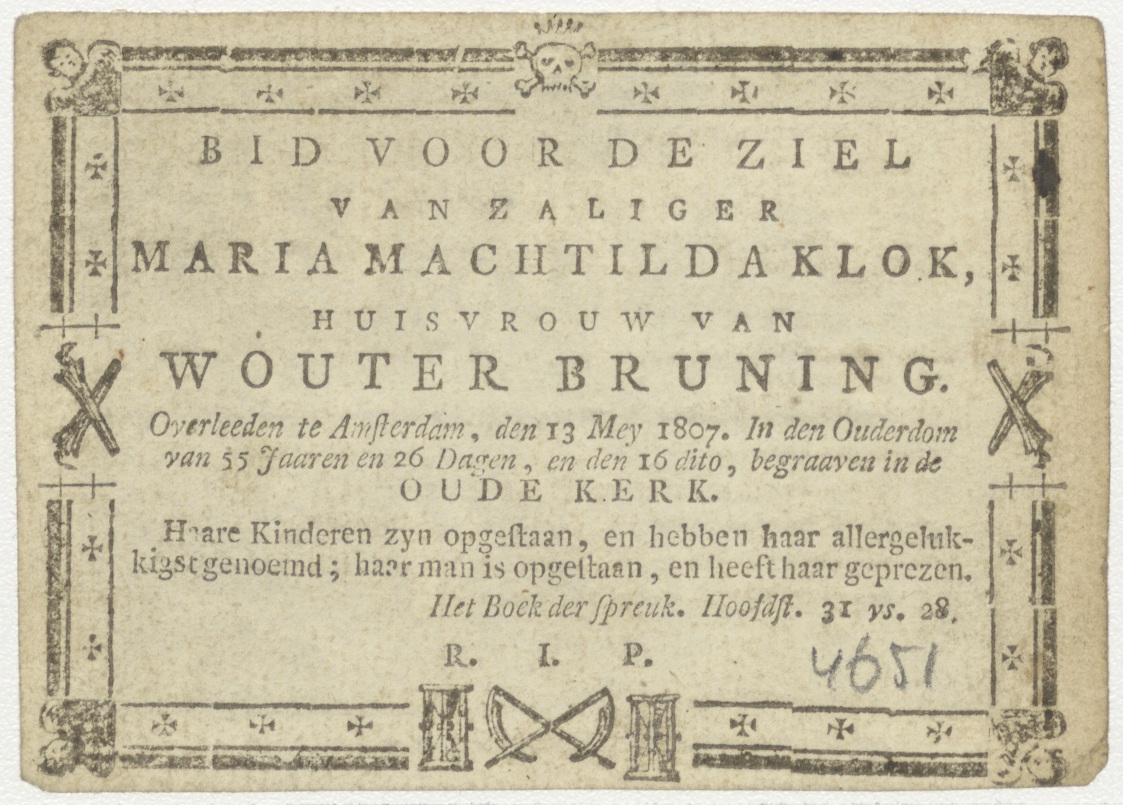 BID VOOR DE ZIEL
VAN ZALIGER
MARIA MACHTILDA KLOK,
HUISVROUW VAN
WOUTER BRUNING.
Overleeden te Amſterdam, den 13 Mey 1807. In den Ouderdom
van 55 Jaaren en 26 Dagen, en den 16 dito, begraaven in de
OUDE KERK.
Haare Kinderen zyn opgeſtaan, en hebben haar allergeluk-
kigst genoemd; haar man is opgeſtaan, en heeft haar geprezen.
Het Boek der ſpreuk. Hoofdſt. 31 vs. 28.
R. I. P.
4651